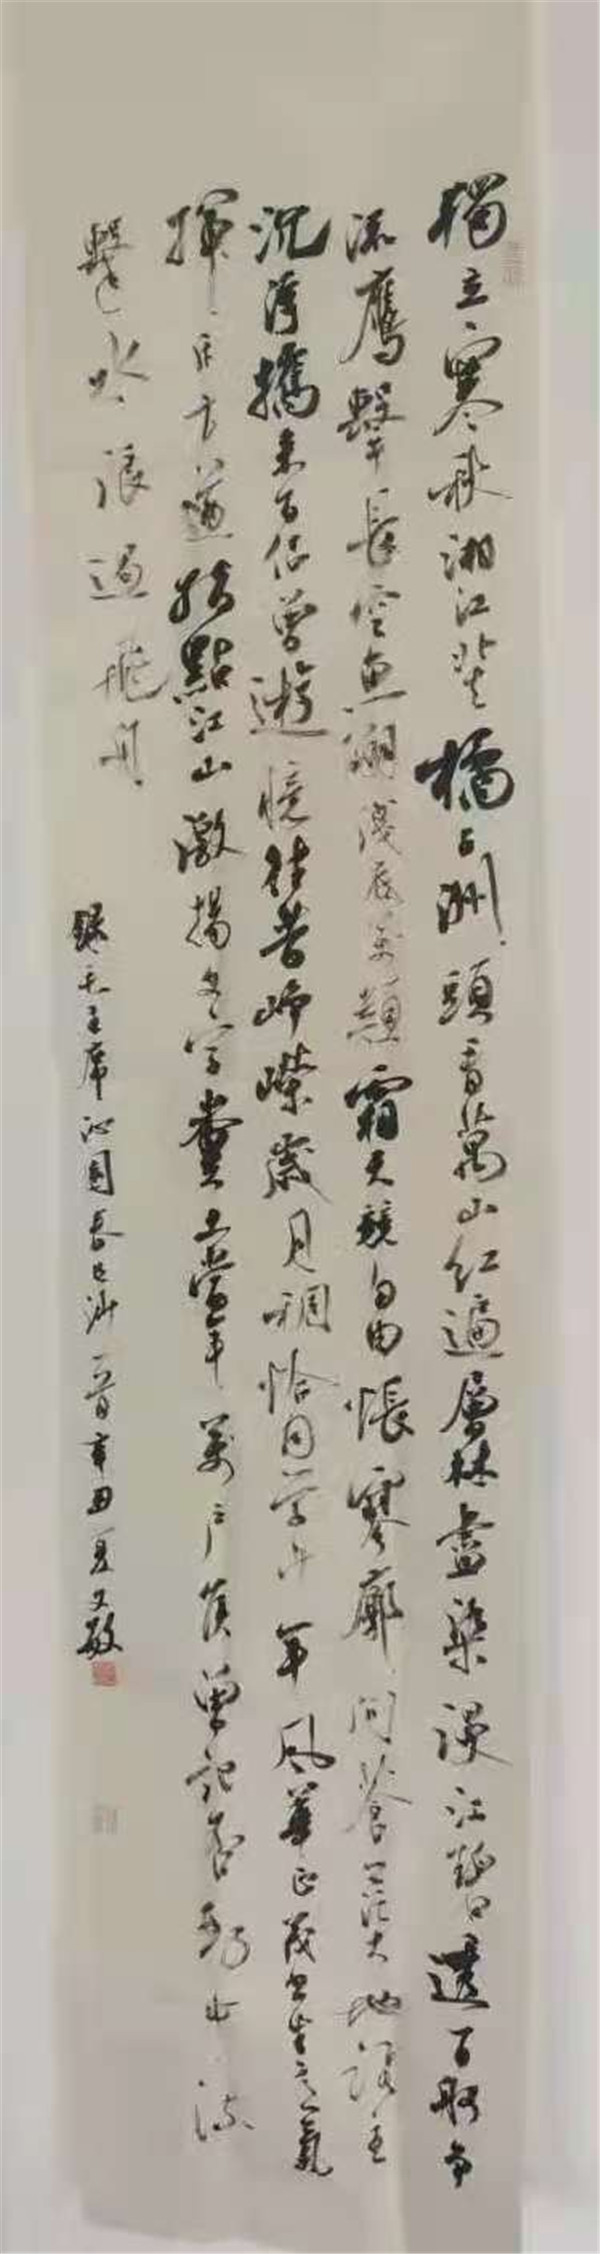 獨立寒秋湘江北去橘子洲頭看萬山紅遍層林盡染漫江碧透百舸爭
流鷹擊長空魚翔淺底萬類霜天競自由悵寥廓問蒼茫大地誰主
沉浮攜來百侶曾遊憶往昔崢嶸歲月稠恰同學少年風華正茂書生意氣
揮斥方遒指點江山激揚文字糞土當年萬戶侯曾記否到中流
擊水浪遏飛舟
錄毛主席沁園春長沙一首辛丑夏文敏